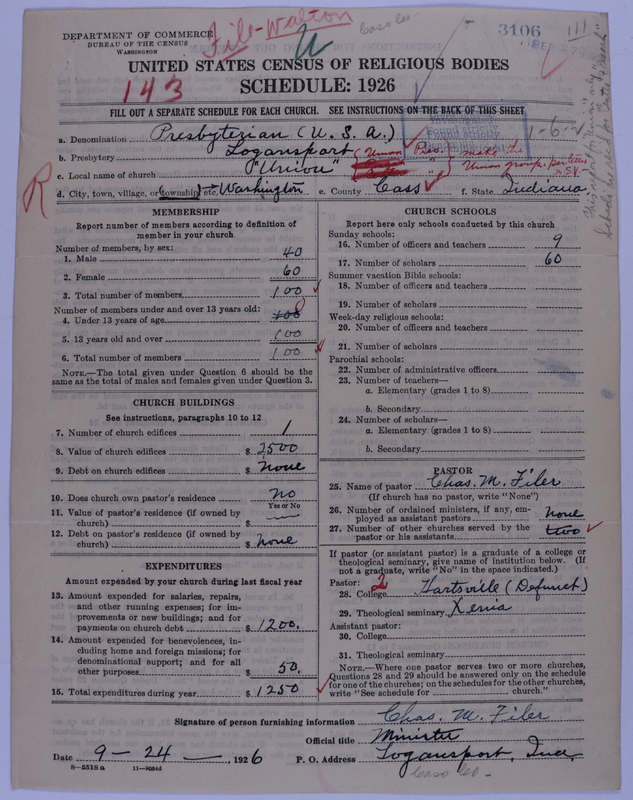 DEPARTMENT OF COMMERCE
BUREAU OF THE CENSUS
WASHINGTON
File-Walton
3106
143
UNITED STATES CENSUS OF RELIGIOUS BODIES
SCHEDULE: 1926
FILL OUT A SEPARATE SCHEDULE FOR EACH CHURCH. SEE INSTRUCTIONS ON THE BACK OF THIS SHEET
a. Denomination Presbyterian (U. S. A.)
b. Presbytery Logansport
c. Local name of church "Union"
d. City, town, village, or (township) etc. Washington e. County Cass f. State Indiana
R
MEMBERSHIP
Report number of members according to definition of
member in your church
Number of members, by sex:
1. Male 40
2. Female 60
3. Total number of members 100
Number of members under and over 13 years old:
4. Under 13 years of age 100 0
5. 13 years old and over 100
6. Total number of members 100
NOTE.—The total given under Question 6 should be
same as the total of males and females given under Question 3.
CHURCH BUILDINGS
See instructions, paragraphs 10 to 12
7. Number of church edifices 1
8. Value of church edifices $ 2500
9. Debt on church edifices $ none
10. Does church own pastor's residence no
Yes or No
11. Value of pastor's residence (if owned by
church) $
12. Debt on pastor's residence (if owned by
church) $ none
EXPENDITURES
Amount expended by your church during last fiscal year
13. Amount expended for salaries, repairs,
and other running expenses; for im-
provements or new buildings; and for
payments on church debt $ 1200.
14. Amount expended for benevolences, in-
cluding home and foreign missions; for
denominational support; and for all
other purposes $ 50.
15. Total expenditures during year $ 1250
CHURCH SCHOOLS
Report here only schools conducted by this church
Sunday schools:
16. Number of officers and teachers 9
17. Number of scholars 60
Summer vacation Bible schools:
18. Number of officers and teachers
19. Number of scholars
Week-day religious schools:
20. Number of officers and teachers
21. Number of scholars
Parochial schools:
22. Number of administrative officers
23. Number of teachers—
a. Elementary (grades 1 to 8)
b. Secondary
24. Number of scholars—
a. Elementary (grades 1 to 8)
b. Secondary
PASTOR
25. Name of pastor Chas. M. Filer
(If church has no pastor, write "None")
26. Number of ordained ministers, if any, em-
ployed as assistant pastors none
27. Number of other churches served by the
pastor or his assistants two
If pastor (or assistant pastor) is a graduate of a college or
theological seminary, give name of institution below. (If
not a graduate, write "No" in the space indicated.)
Pastor: 2
28. College Hartsville (Defunct)
29. Theological seminary Xenia
Assistant pastor:
30. College
31. Theological seminary
NOTE.—Where one pastor serves two or more churches,
Questions 28 and 29 should be answered only on the schedule
for one of the churches; on the schedules for the other churches,
write "See schedule for church."
Signature of person furnishing information Chas. M. Filer
Official title Minister
Date 9-24, 1926 P. O. Address Logansport, Ind.
8-5518a